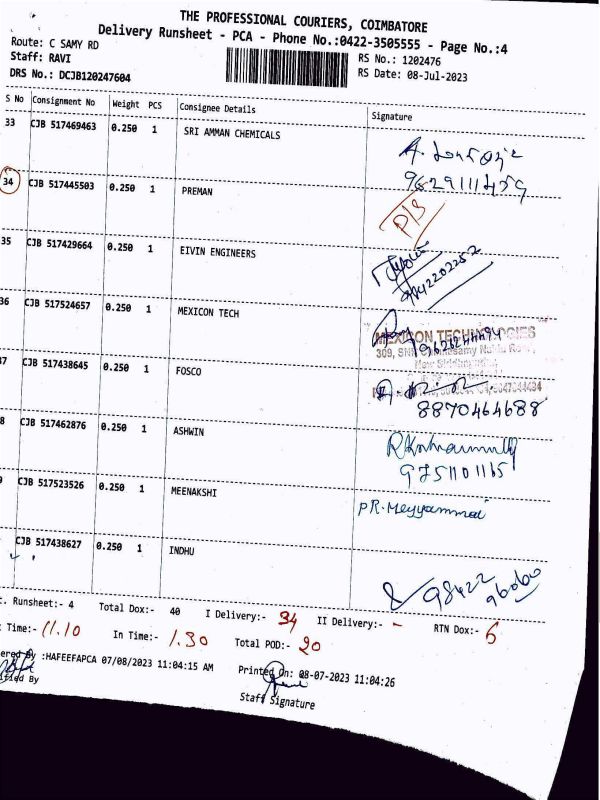 THE PROFESSIONAL COURIERS, COIMBATORE
Delivery Runsheet - PCA - Phone No.:0422-3505555 - Page No.:4
Route: C SAMY RD
RS No.: 1202476
Staff: RAVI
RS Date: 08-Jul-2023
DRS No.: DCJB120247604
S No Consignment No Weight PCS Consignee Details Signature
33 CJB 517469463 0.250 1 SRI AMMAN CHEMICALS
34 CJB 517445503 0.250 1 PREMAN
35 CJB 517429664 0.250 1 EIVIN ENGINEERS
36 CJB 517524657 0.250 1 MEXICON TECH
MEXICON TECHNOLOGIES
37 CJB 517438645 0.250 1 FOSCO
8870464688
8 CJB 517462876 0.250 1 ASHWIN
9751101165
9 CJB 517523526 0.250 1 MEENAKSHI
PR. Meyyammai
CJB 517438627 0.250 1 INDHU
98422
. Runsheet:- 4 Total Dox:- 40 I Delivery:- 34 II Delivery:- - RTN Dox:- 6
Time:- 11.10 In Time:- 1.30 Total POD:- 20
ered By :HAFEEFAPCA 07/08/2023 11:04:15 AM Printed On: 08-07-2023 11:04:26
ified By
Staff Signature